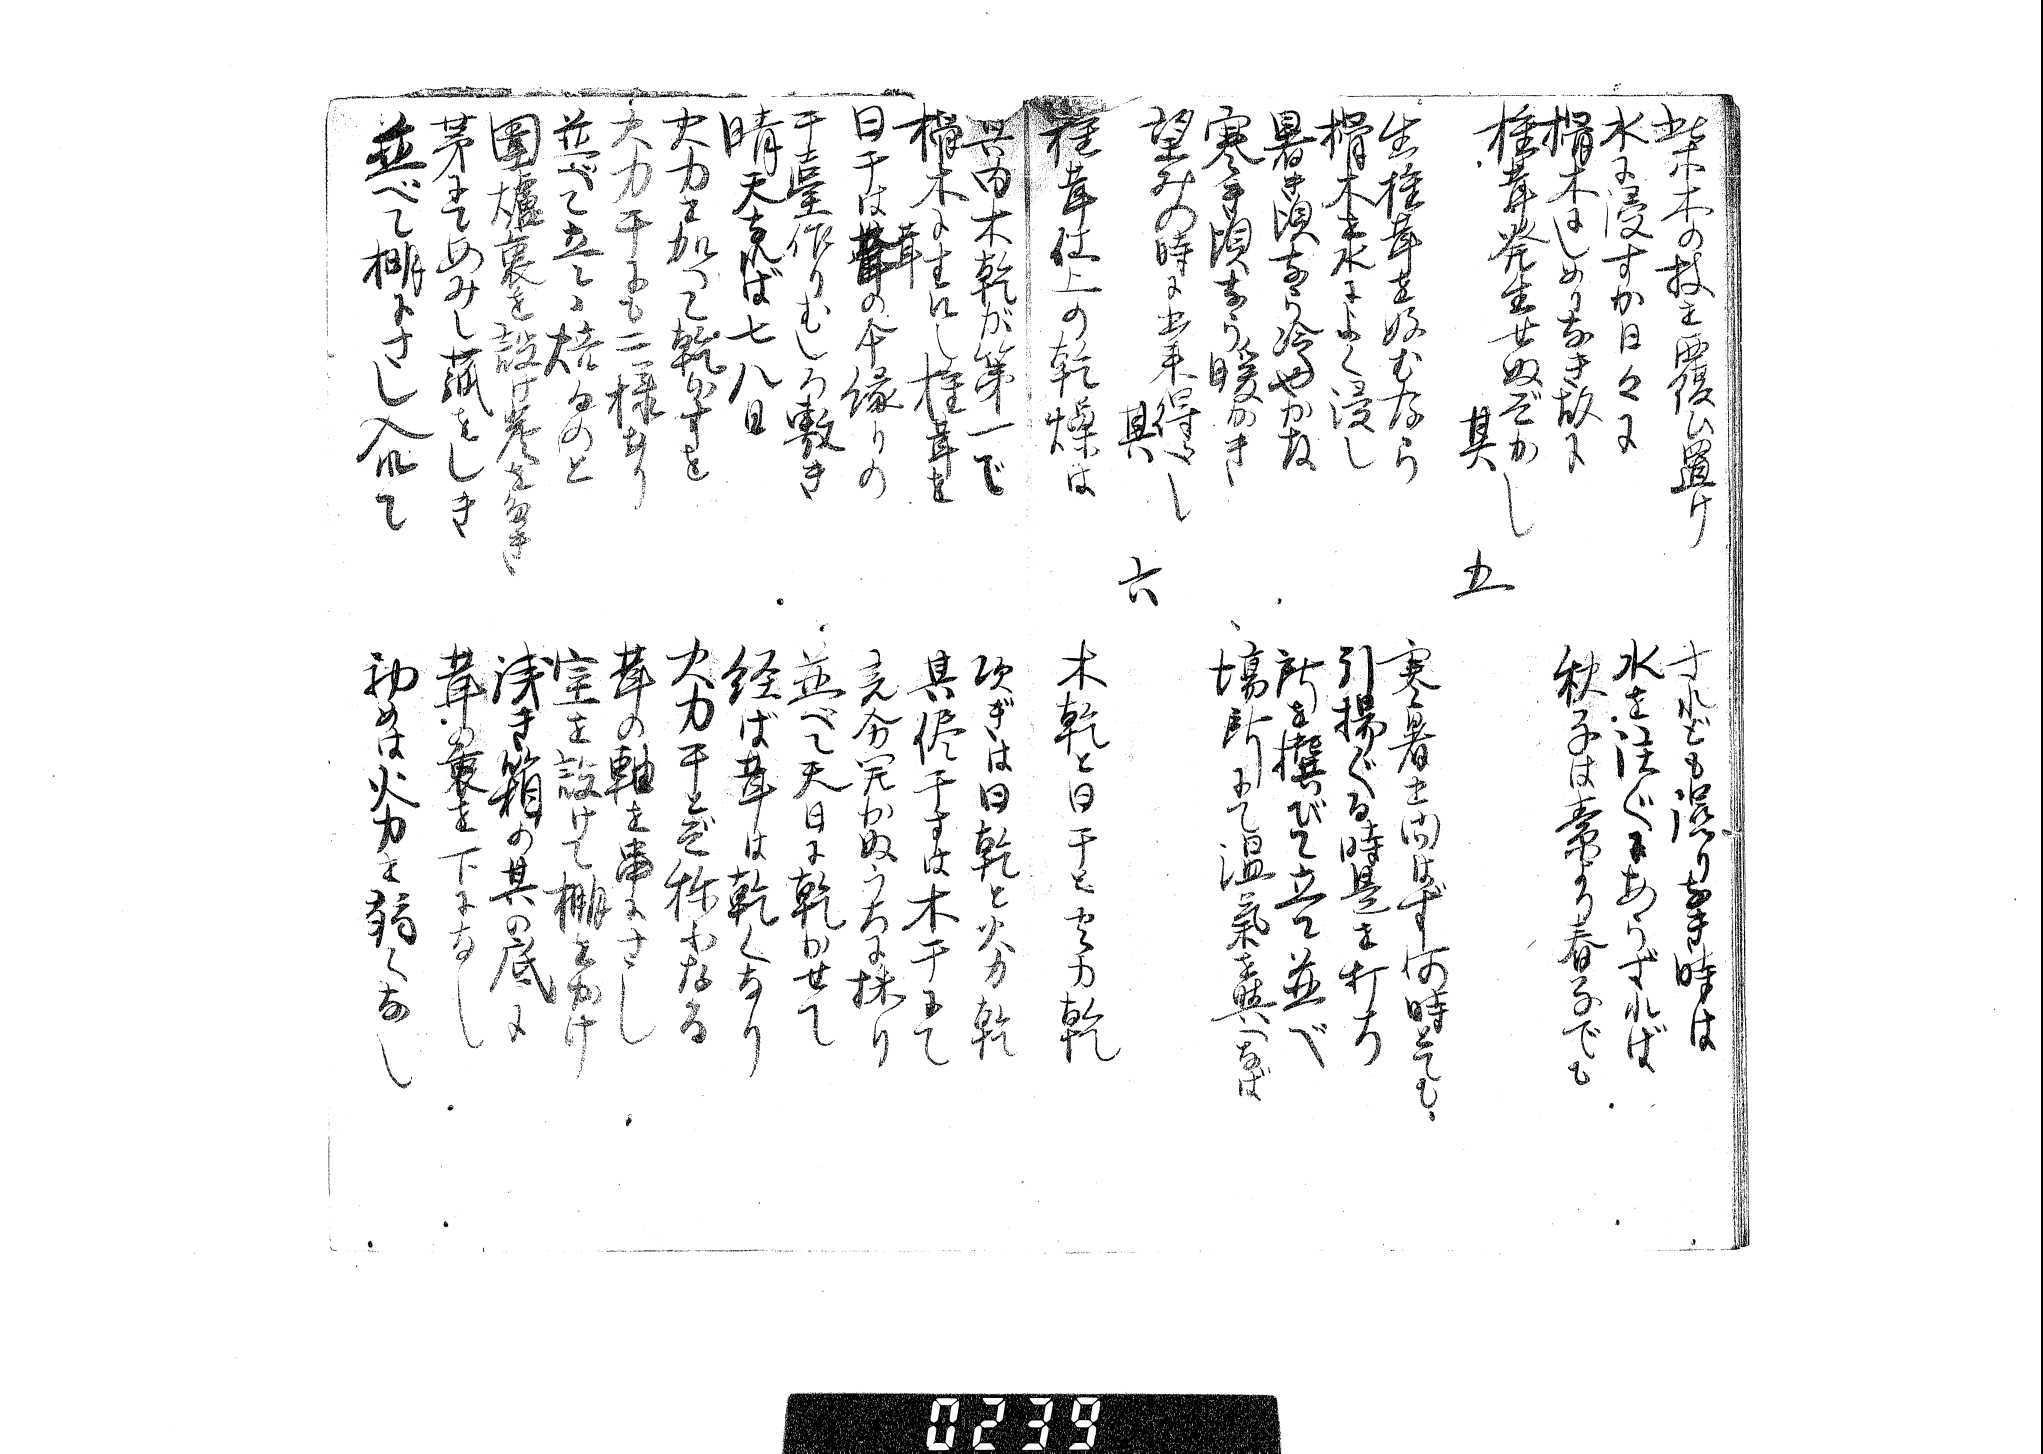 柴木の枝を覆ひ置け　すれども湿りなき時は
水に浸すか日々に　水を注ぐにあらざれば
榾木はしめりなき故に　秋子は素より春子でも
椎茸発生せぬぞかし
其　五
生椎茸を好むなら　寒暑を問はず何時とても
榾木を水によく浸し　引揚ぐる時是を打ち
暑き頃なら冷やかな　所を撰びて立て並べ
寒き頃なら暖かき　場所にて温氣を與へなば
望みの時に出来得べし
其　六
椎茸仕上の乾燥は　木乾と日干と火力乾
其内木乾が第一で　次ぎは日乾と火力乾
榾木に生ぜし椎茸を　其侭干すは木干にて
日干は茸の傘縁りの　充分開かぬうちに採り
干臺作りむしろ敷き　並べて天日に乾かせて
晴天なれば七八日　経ば茸は乾くなり
火力を加へて乾かすを　火力干とぞ称ふなる
火力干にも二様あり　茸の軸を串にさし
並べて立てゝ焙るのと　室を設けて棚をかけ
圍爐裏を設け炭を焚き　浅き箱の其の底に
茅にてあみし簾をしき　茸の裏を下になし
並べて棚にさし入れて　初めは火力を弱くなし
0239